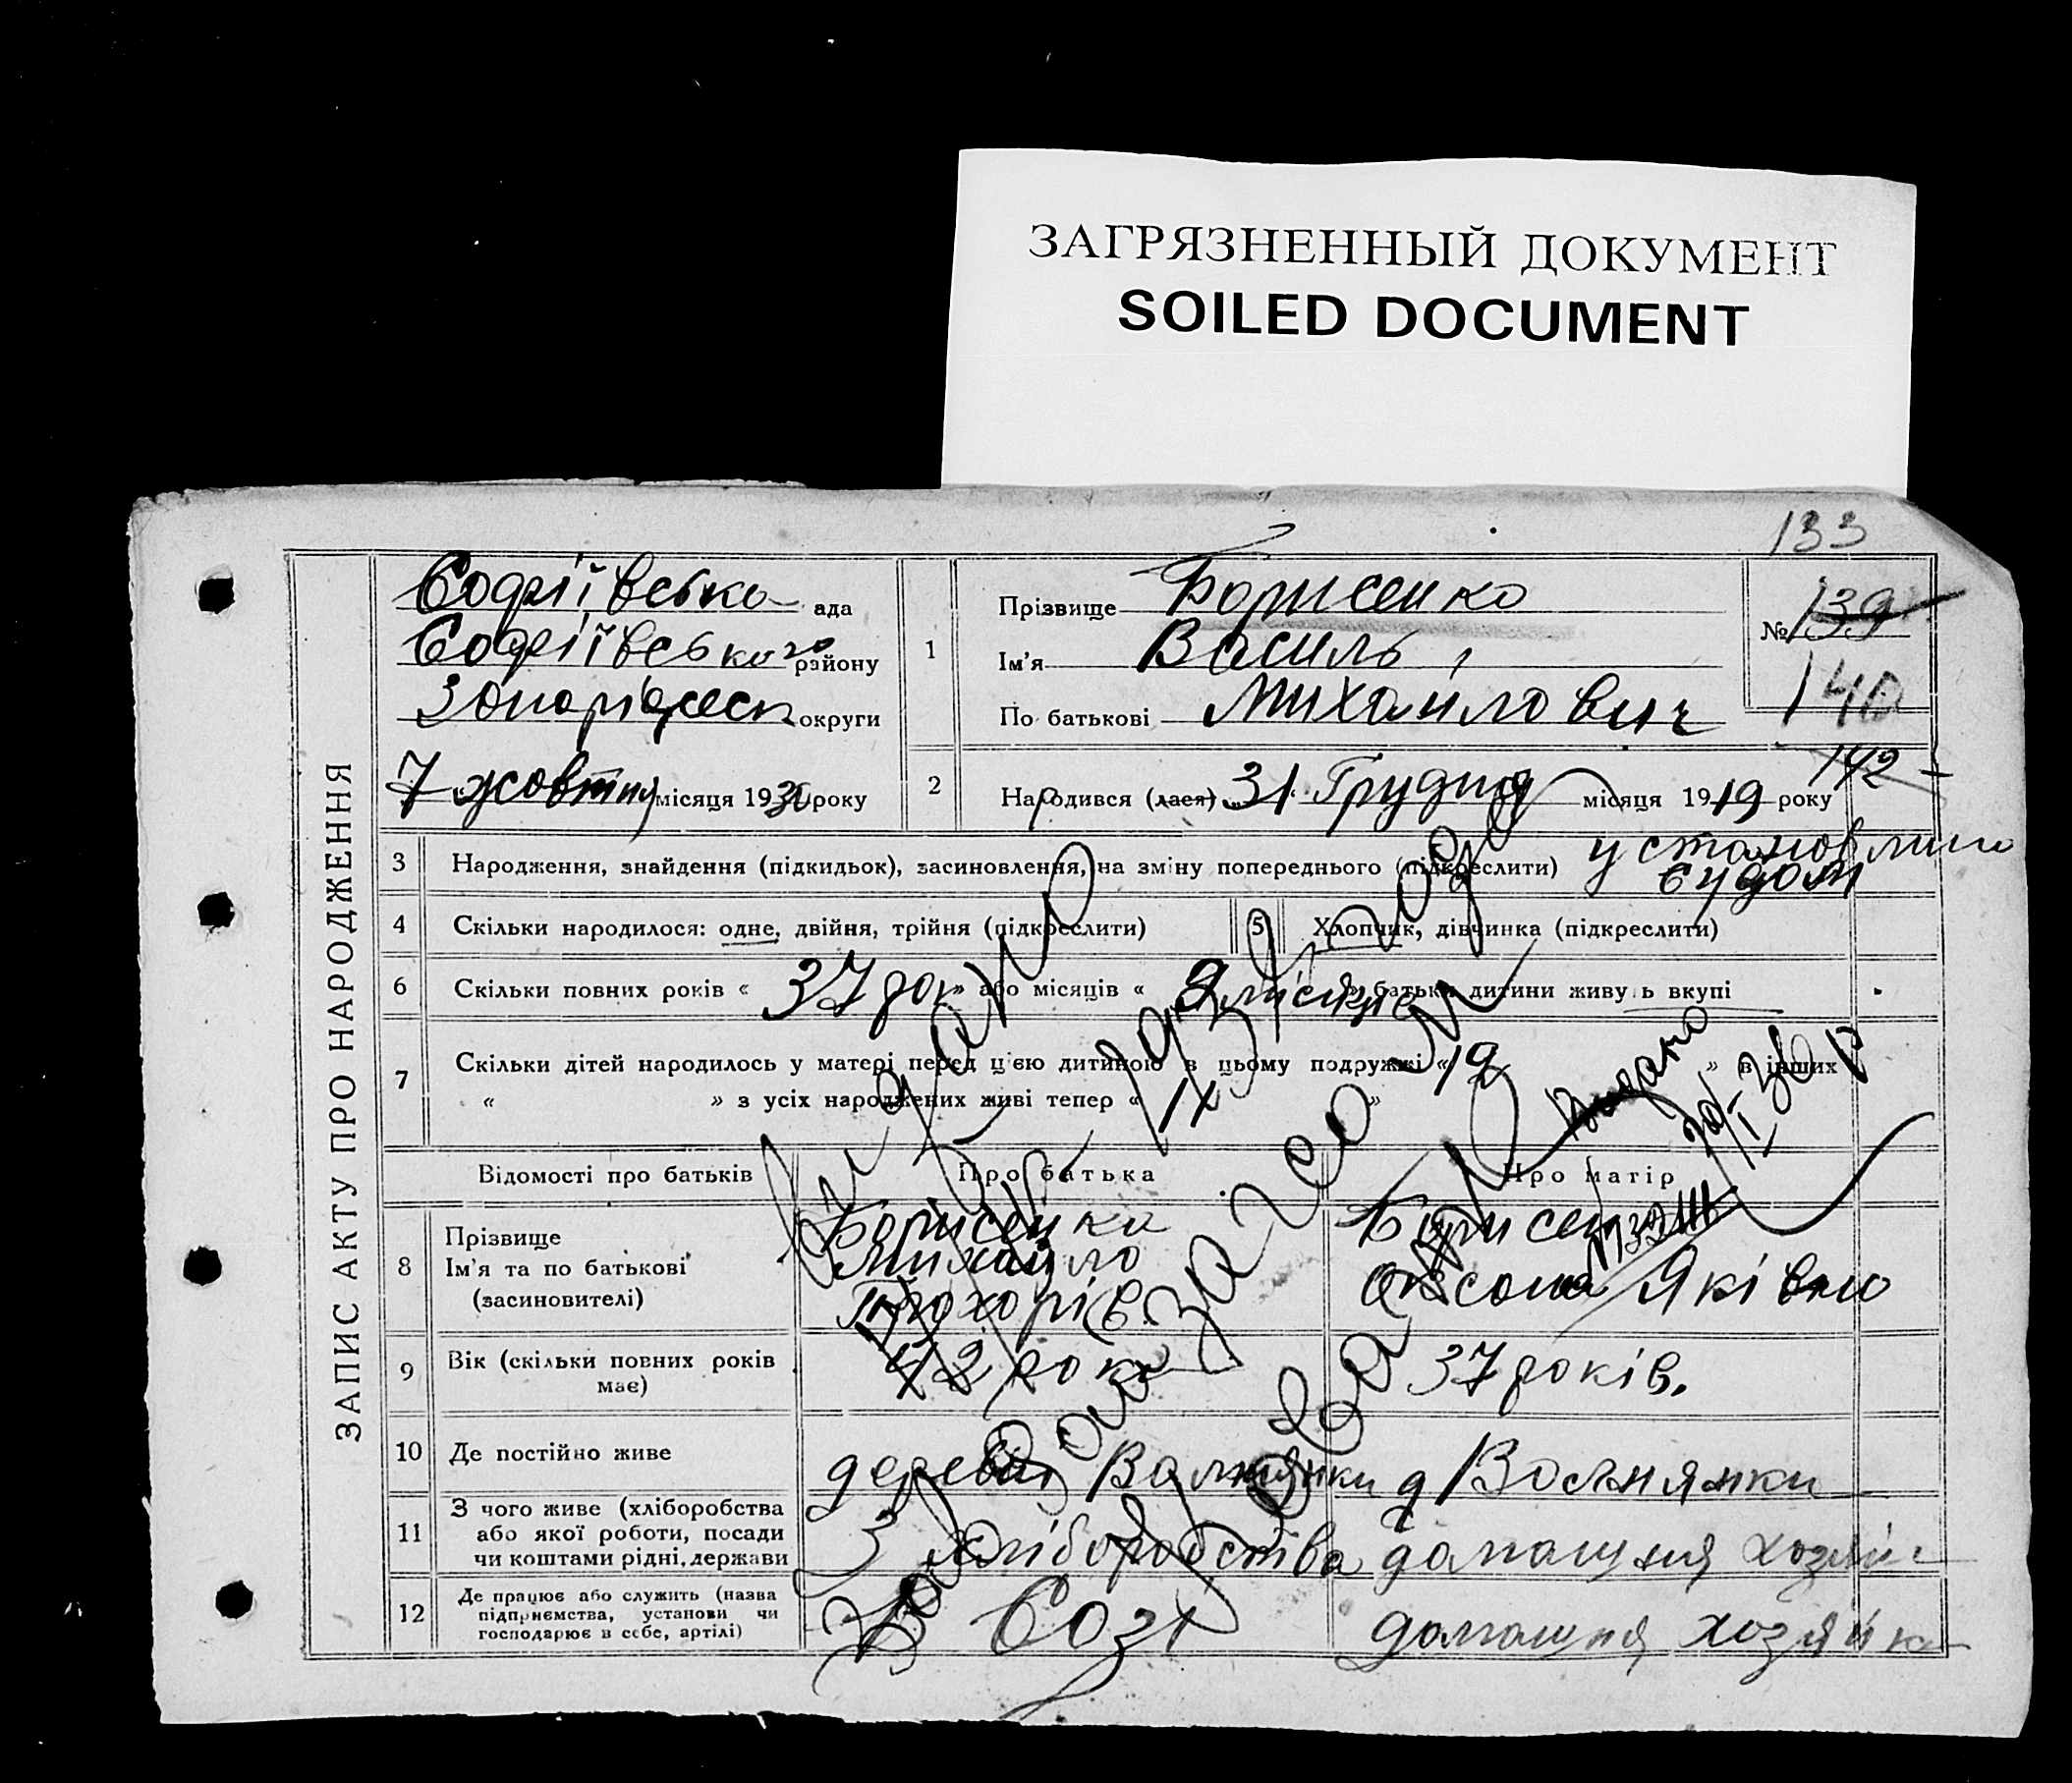 ЗАГРЯЗНЕННЫЙ ДОКУМЕНТ
SOILED DOCUMENT
133
ЗАПИС АКТУ ПРО НАРОДЖЕННЯ
Софіївська ада
Софіївського району
округи
7 жовтня місяця 1930 року
1
Прізвище Борисенко
Ім'я Василь
По батькові Михайлович
№ 139
140
142
2
Народився (лася) 31 Грудня місяця 1919 року
установлино
судом
3 Народження, знайдення (підкидьок), засиновлення, на зміну попереднього (підкреслити)
4 Скільки народилося: одне, двійня, трійня (підкреслити)
5 Хлопчик, дівчинка (підкреслити)
6 Скільки повних років « 37 рок » або місяців « 9 місяців батьки дитини живуть вкупі
7 Скільки дітей народилось у матері перед цією дитиною в цьому подружжі « 12 » в інших
« » з усіх народжених живі тепер « »
Видано
Відомості про батьків
Про батька
Про матір
8 Прізвище
Ім'я та по батькові
(засиновителі)
Борисенко
Михайло
Прохорів
Борисен
Оксана Яківно
9 Вік (скільки повних років має)
42 роки
37 років.
10 Де постійно живе
деревня Вольнянки
д Вольнянки
11 З чого живе (хліборобства
або якої роботи, посади
чи коштами рідні, держави
З хліборобства
домашня хозяй
12 Де працює або служить (назва
підприємства, установи чи
господарює в себе, артілі)
Созі
домашня хозяйка